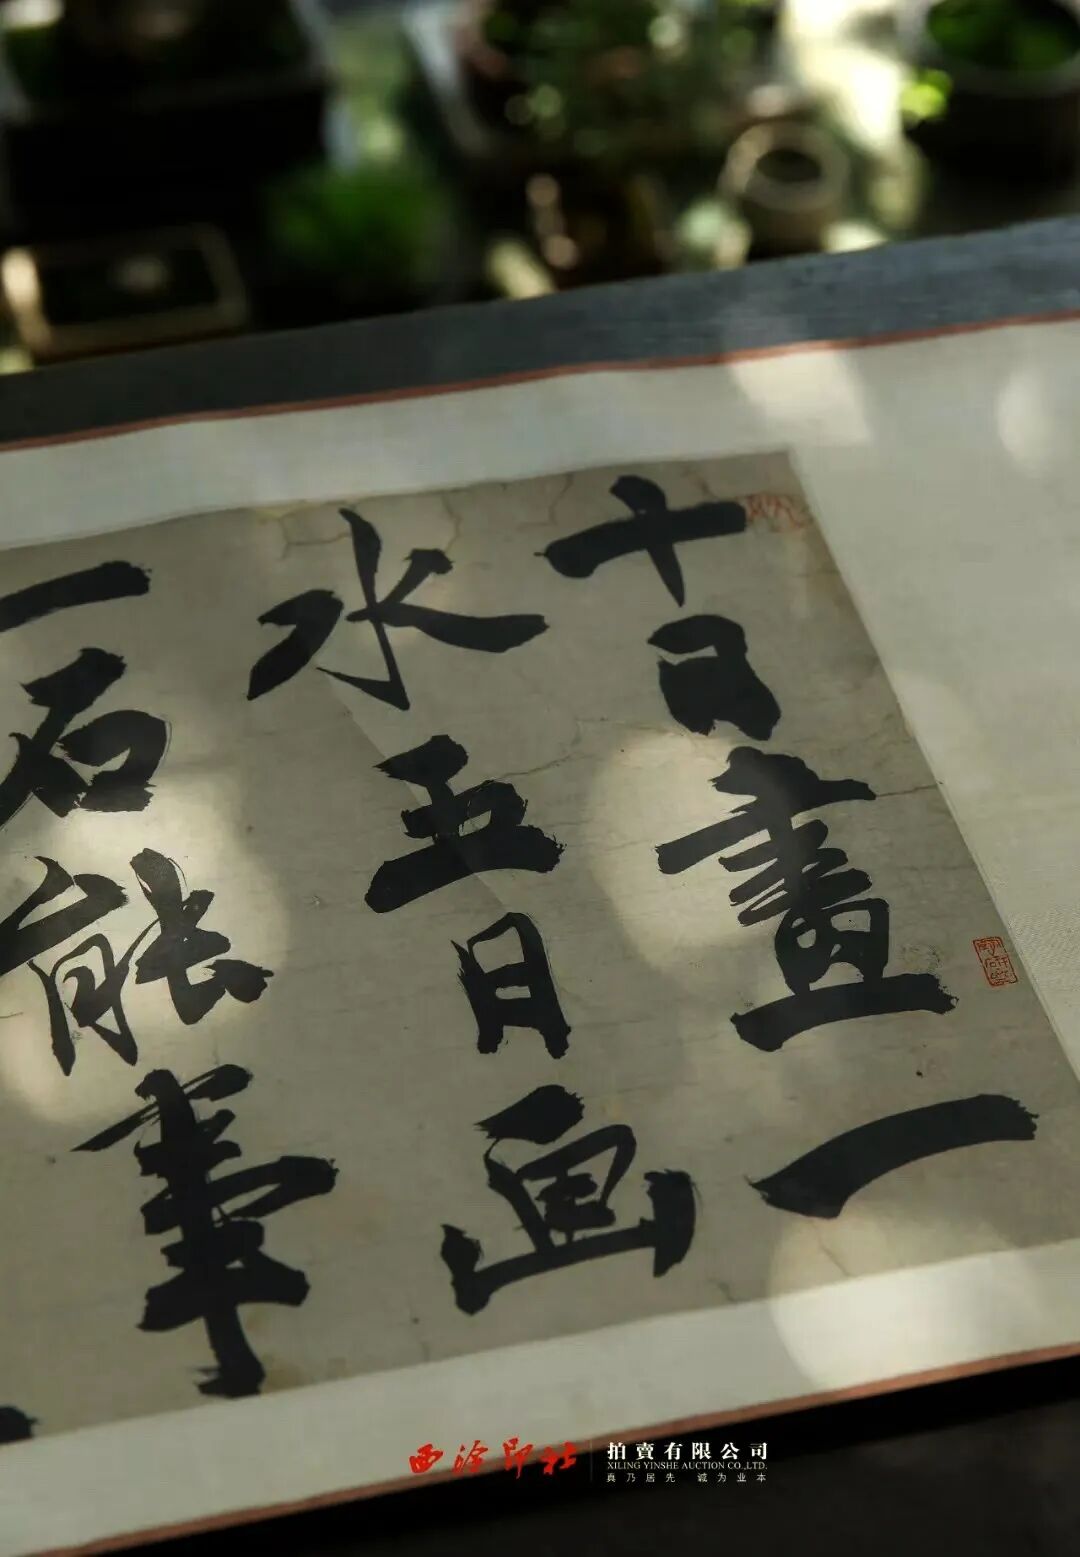 十日畫一
水五日画
一石能事
西泠印社
拍賣有限公司
XILING YINSHE AUCTION CO.,LTD.
真乃居先 诚为业本